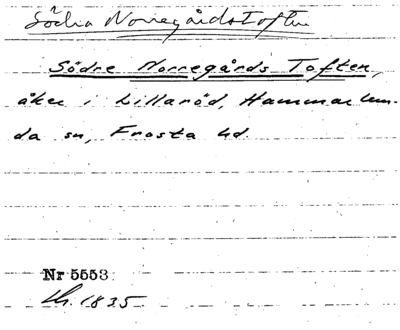 Södra Norregårdstoften
Södre Norregårds Toften,
åker i Lillaröd, Hammarlun-
da sn, Frosta hd.
Nr 5553
1835